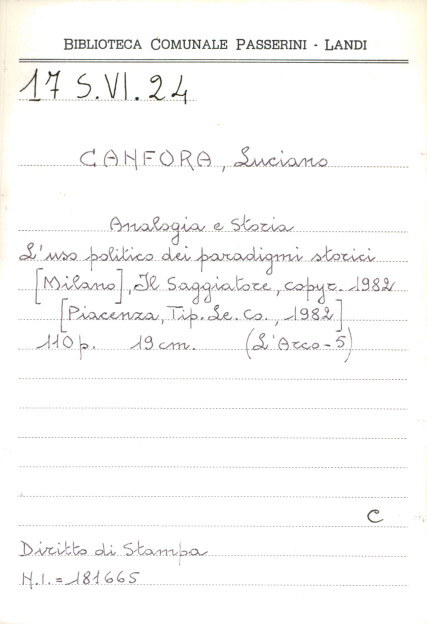 BIBLIOTECA COMUNALE PASSERINI - LANDI
17 S.VI.24
CANFORA, Luciano
Analogia e Storia
L'uso politico dei paradigmi storici
[Milano], Il Saggiatore, copyr. 1982
[Piacenza, Tip. Le. Co., 1982]
110 p. 19 cm. (L'Arco - 5)
C
Diritto di Stampa
N.I. = 181665